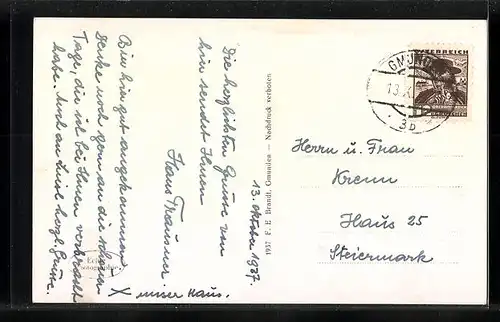 Bin hier gut angekommen
Denke noch gern an die schönen
Tage, die ich bei Ihnen verbracht
habe. Auch an Luise herzl. Grüße.
Die herzlichsten Grüße von
hier sendet Ihnen
Hans
13. Oktober 1937.
X unser Haus.
1937 F. E. Brandt, Gmunden — Nachdruck verboten
Echte
ÖSTERREICH
GMUND
13.X.
3b
Herrn u. Frau
Krenn
Haus 25
Steiermark